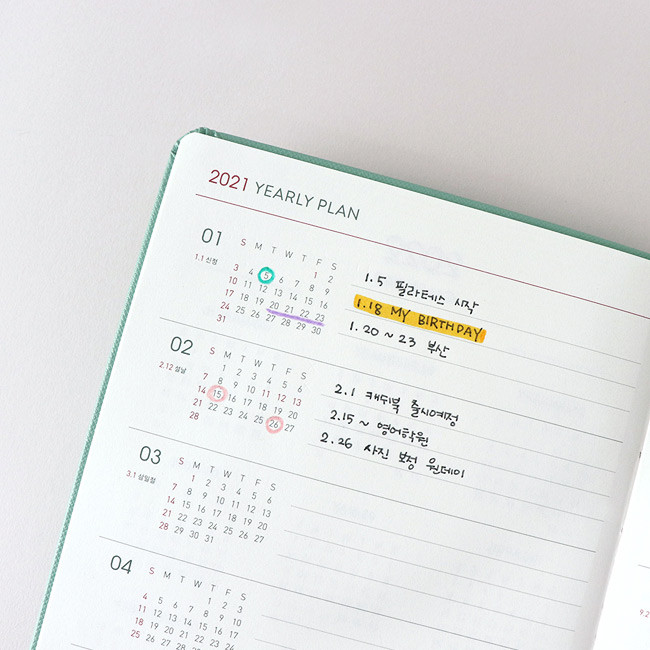 2021 YEARLY PLAN
01
S M T W T F S
1 2
1.1 신정
3 4 5 6 7 8 9
10 11 12 13 14 15 16
17 18 19 20 21 22 23
24 25 26 27 28 29 30
31
1.5 필라테스 시작
1.18 MY BIRTHDAY
1.20 ~ 23 부산
02
S M T W T F S
1 2 3 4 5 6
2.12 설날
7 8 9 10 11 12 13
14 15 16 17 18 19 20
21 22 23 24 25 26 27
28
2.1 캐쉬북 출시예정
2.15 ~ 영어학원
2.26 사진 보정 원데이
03
S M T W T F S
1 2 3 4 5 6
3.1 삼일절
7 8 9 10 11 12 13
14 15 16 17 18 19 20
21 22 23 24 25 26 27
28 29 30 31
04
S M T W T F S
1 2 3
4 5 6 7 8 9 10
11 12 13 14 15 16 17
18 19 20 21 22 23 24
25 26 27 28 29 30
9.2